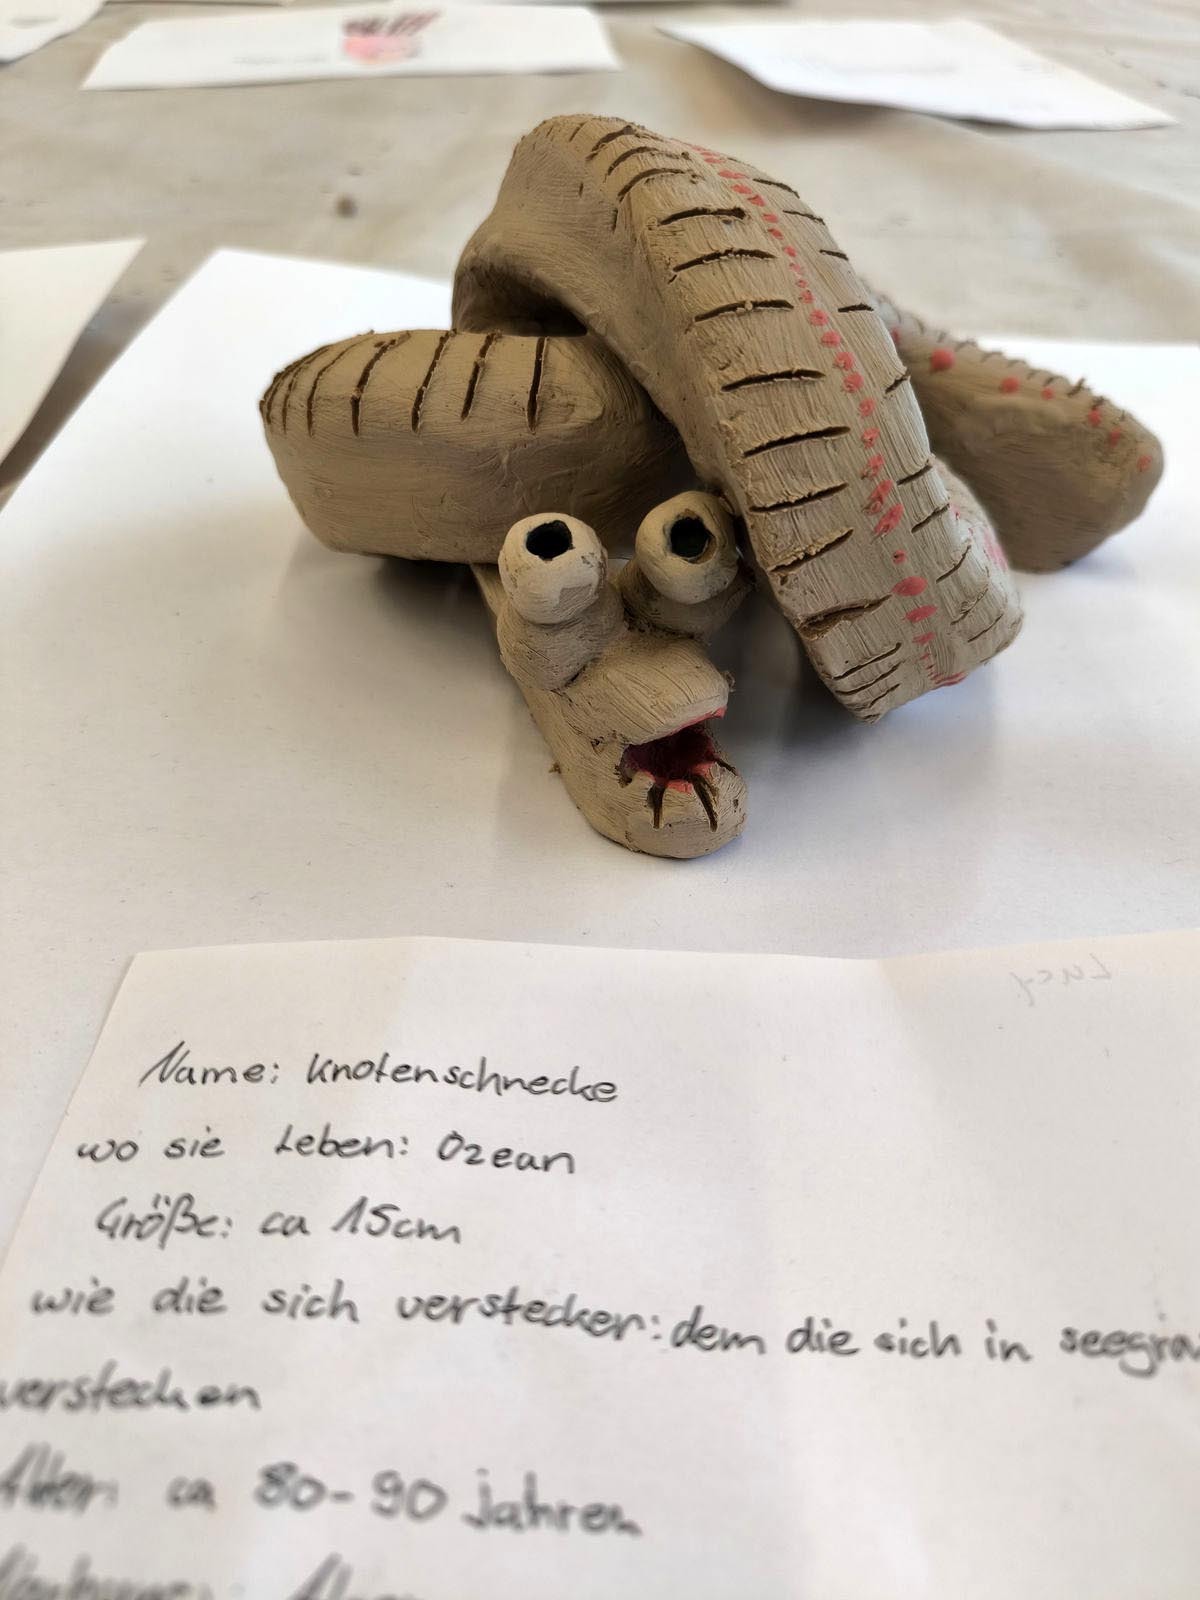 Lucy
Name: Knotenschnecke
wo sie Leben: Ozean
Größe: ca 15cm
wie die sich verstecken: dem die sich in
verstecken
Alter: ca 80-90 jahren